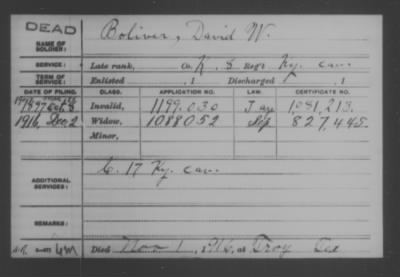 DEAD
NAME OF SOLDIER: Boliver, David W.
SERVICE: Late rank, Co. K, 8 Reg't Ky. Cav.
TERM OF SERVICE: Enlisted , 1 Discharged , 1
DATE OF FILING. CLASS. APPLICATION NO. LAW. CERTIFICATE NO.
1897 Invalid, 1199.030 1,081,213.
1916, Dec. 2 Widow, 1088052 827,445.
Minor,
ADDITIONAL SERVICES: C. 17 Ky. Cav.
REMARKS:
Died Nov 1, 1916, at Troy